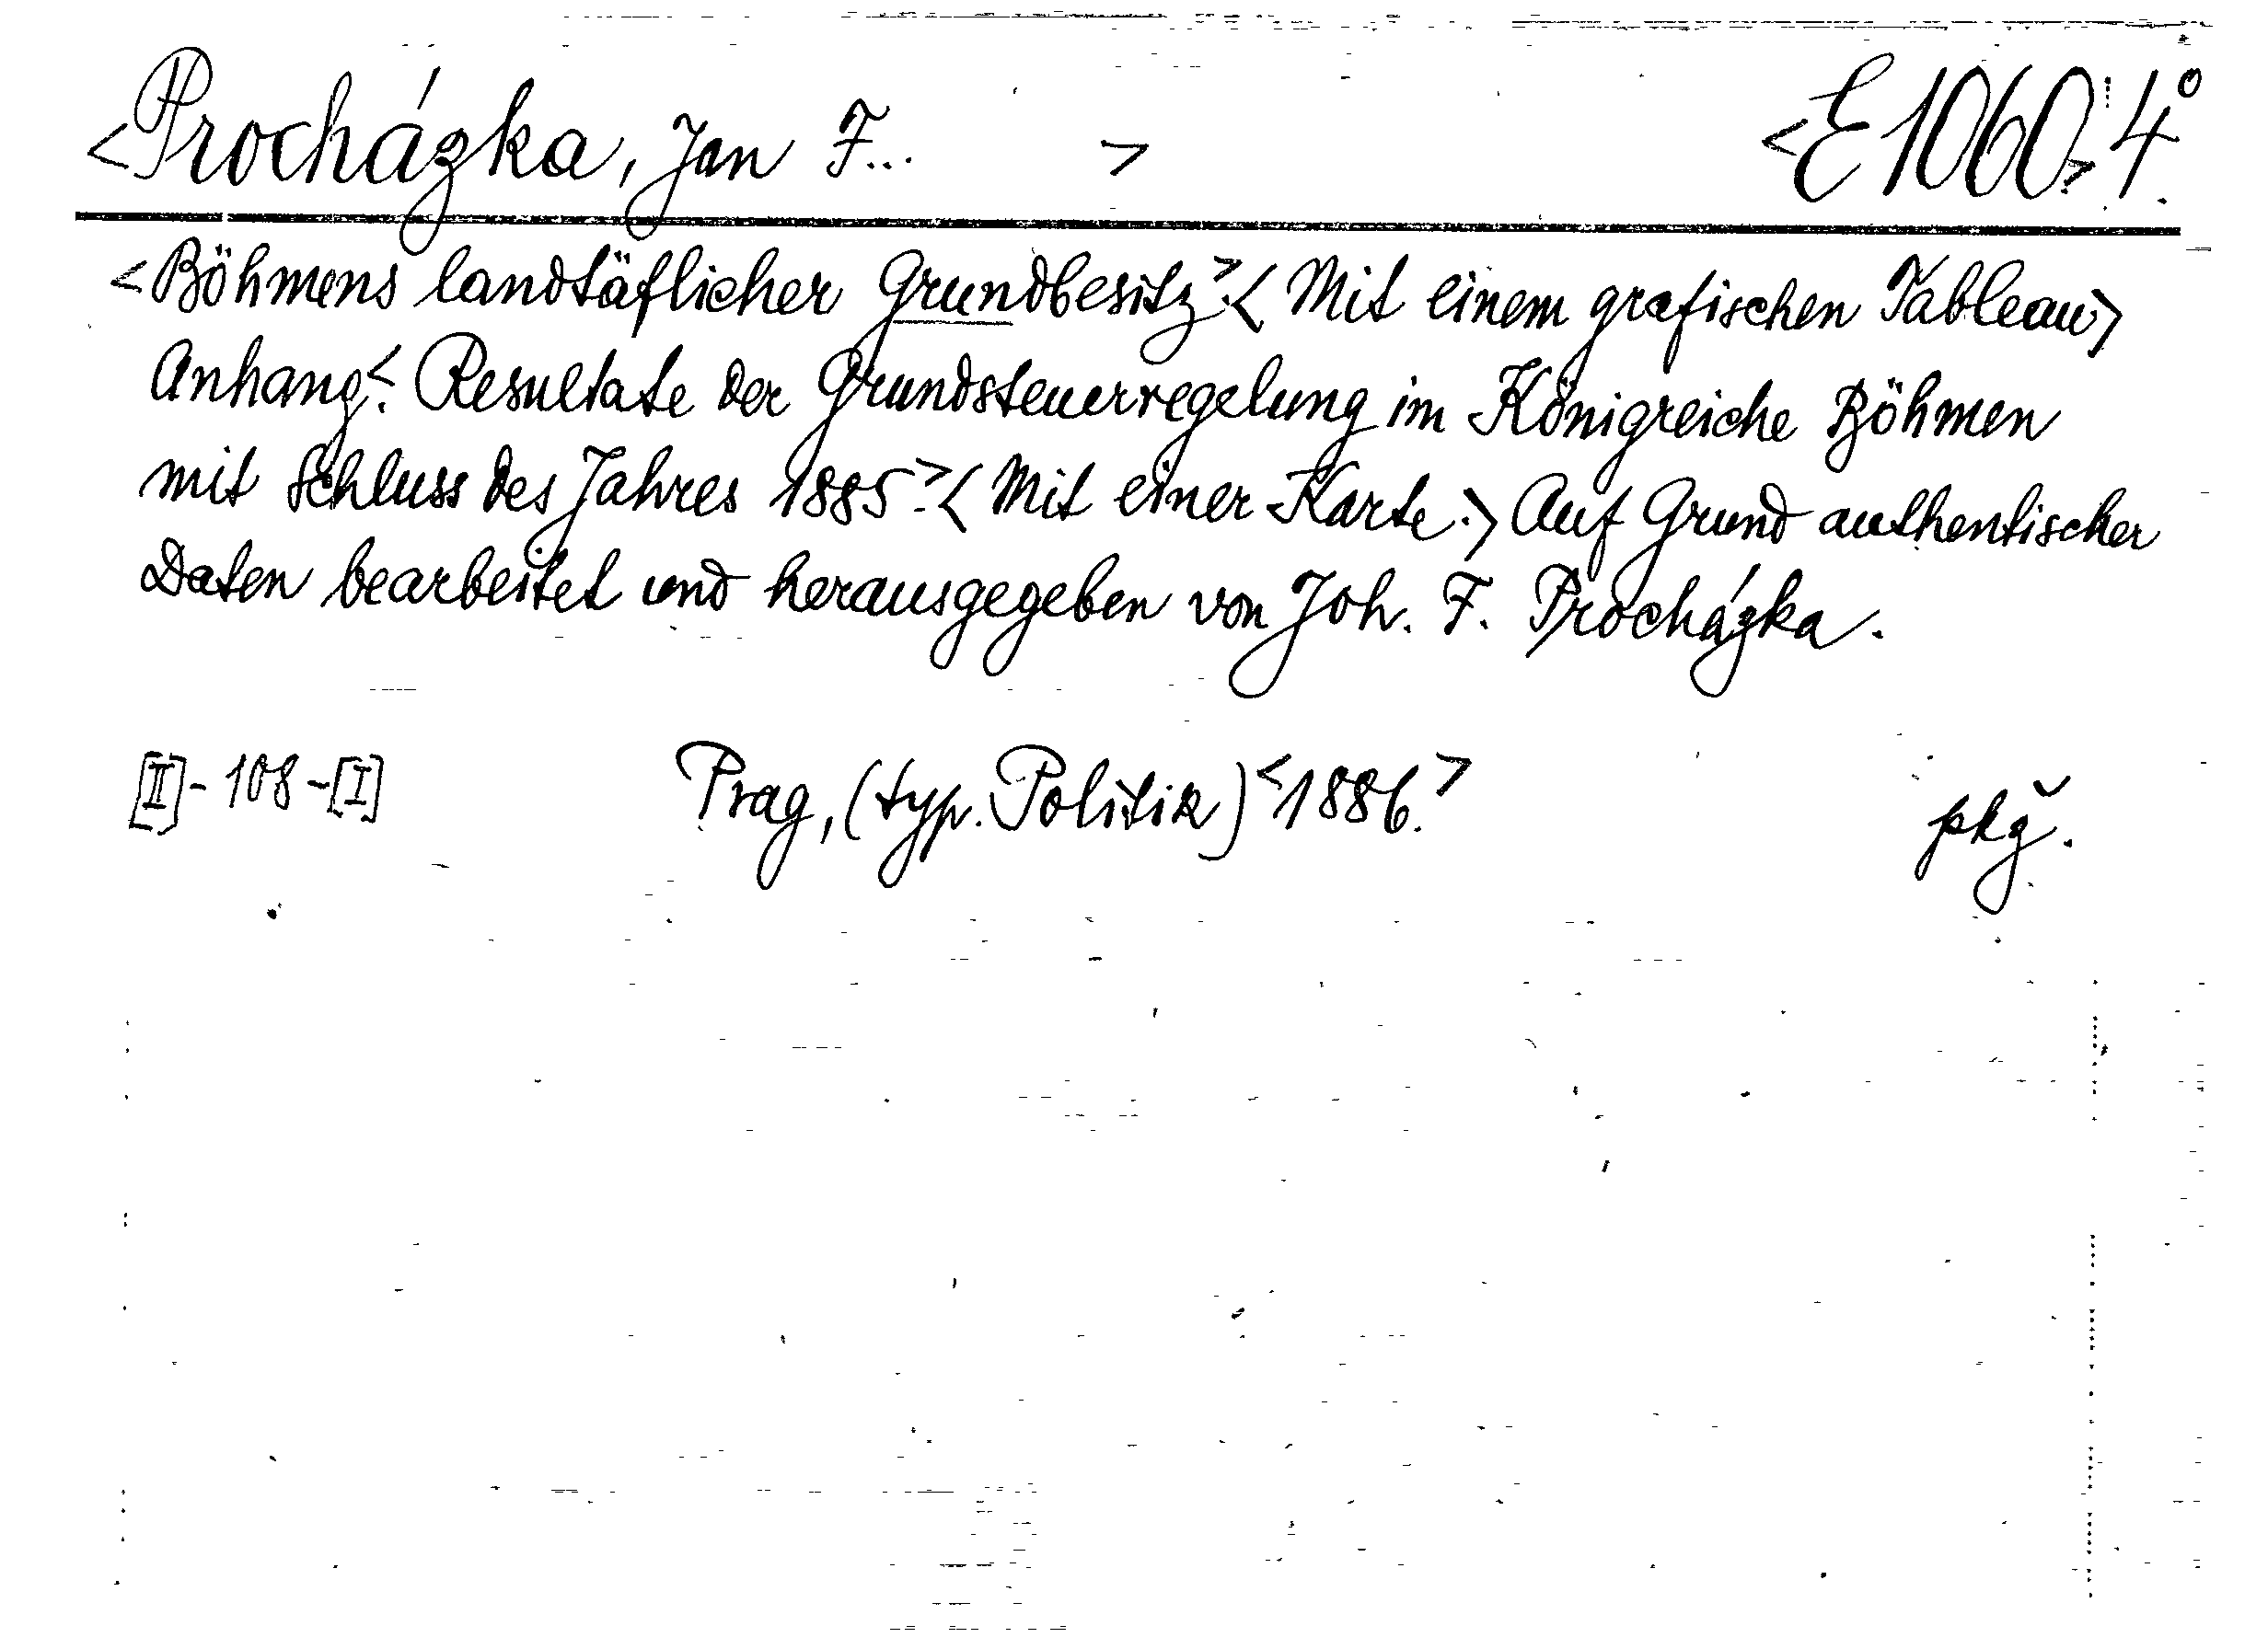 <Procházka, Jan F... > <E 1060>4°.
<Böhmens landtäflicher Grundbesitz>.<Mit einem grafischen Tableau>
Anhang<: Resultate der Grundsteuerregelung im Königreiche Böhmen
mit Schluss des Jahres 1885>.<Mit einer Karte.> Auf Grund authentischer
Daten bearbeitet und herausgegeben von Joh. F. Procházka.
[II]-108-[I] Prag, (typ. Politik) <1886.> pkž.